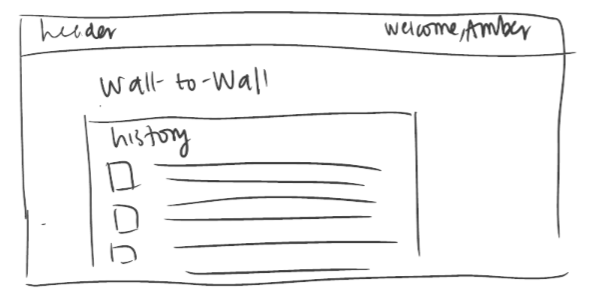 header
welcome, Amber
Wall-to-Wall
history